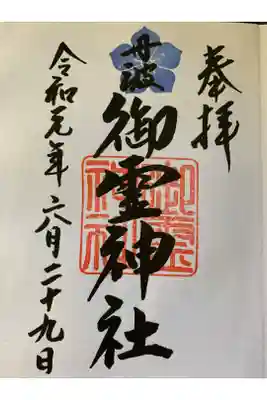 奉拝
丹波
御霊神社
御霊神社
令和元年六月二十九日